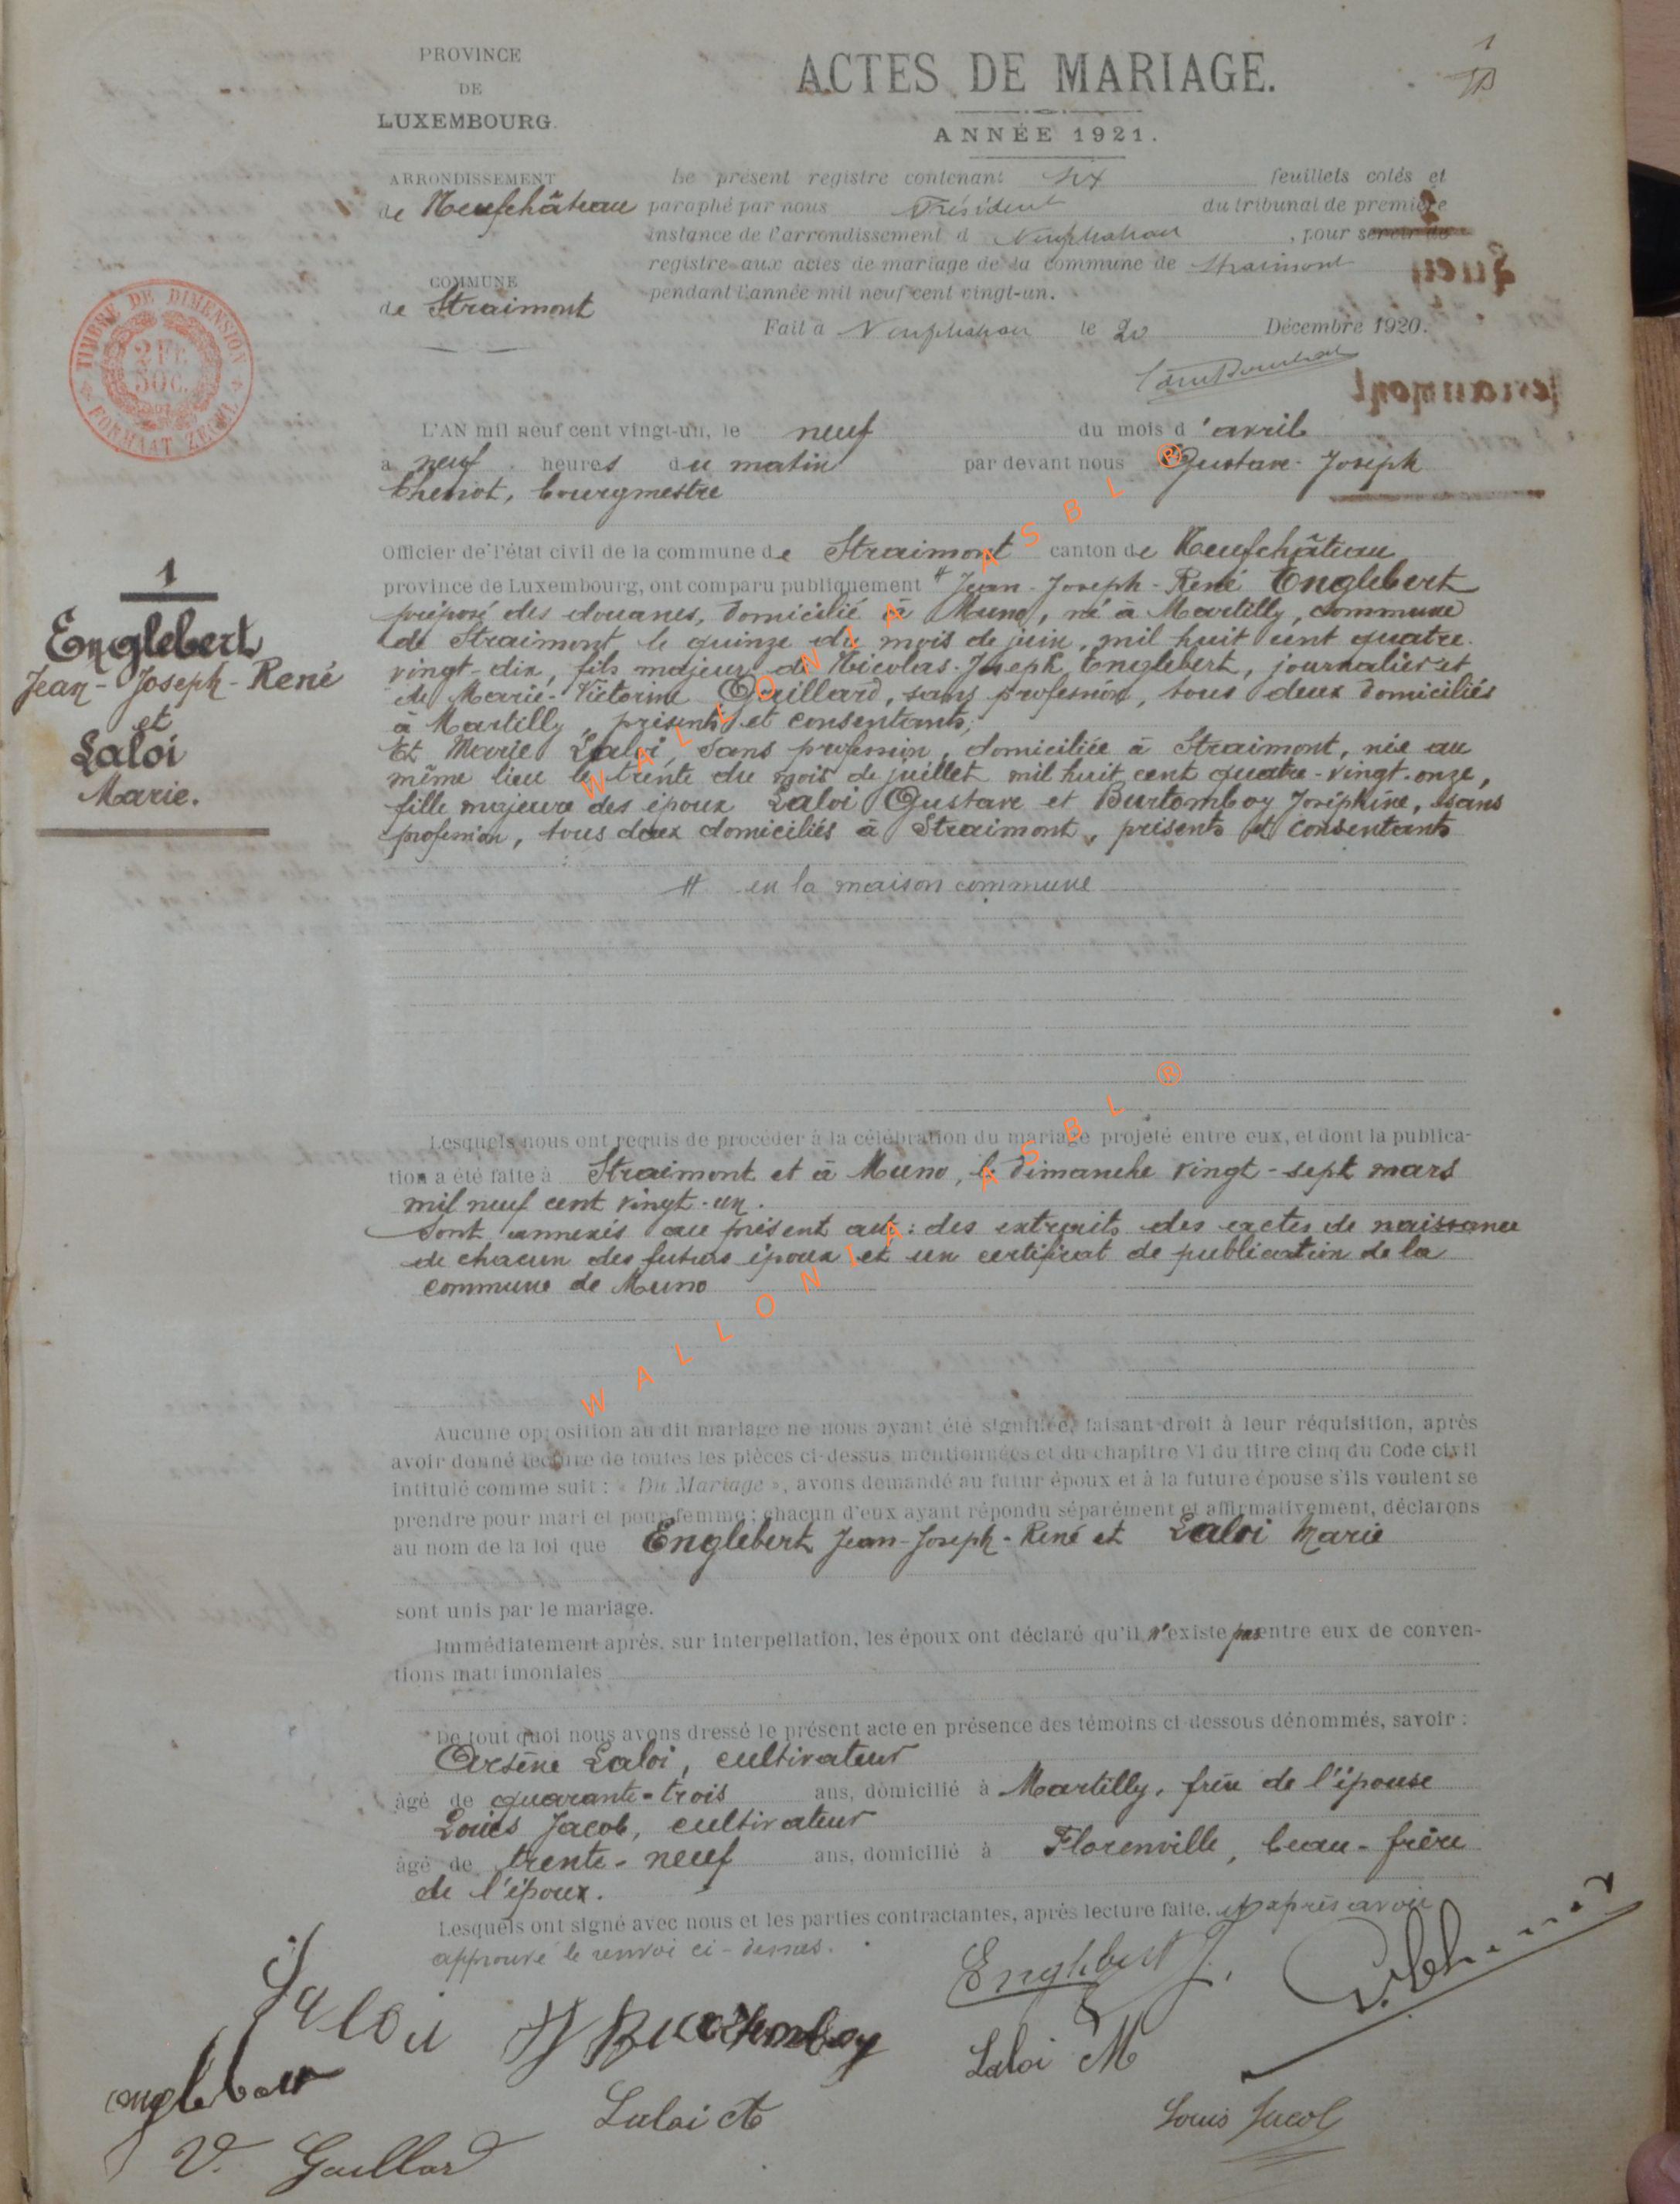 1
PROVINCE
DE
LUXEMBOURG.
ACTES DE MARIAGE.
ANNÉE 1921.
ARRONDISSEMENT
de Neufchâteau
COMMUNE
de Straimont
Le présent registre contenant six feuillets cotés et
paraphé par nous Président du tribunal de première
instance de l'arrondissement d Neufchateau, pour servir de
registre aux actes de mariage de la commune de Straimont
pendant l'année mil neuf cent vingt-un.
Fait à Neufchateau le 20 Décembre 1920.
TIMBRE DE DIMENSION
2 FR.
50 C.
FORMAAT ZEGEL
L'AN mil neuf cent vingt-un, le neuf du mois d'avril
a neuf heures du matin par devant nous Gustave-Joseph
Cheniot, bourgmestre
Officier de l'état civil de la commune de Straimont canton de Neufchâteau
province de Luxembourg, ont comparu publiquement # Jean-Joseph-René Englebert
préposé des douanes, domicilié à Muno, né à Martilly, commune
de Straimont le quinze du mois de juin, mil huit cent quatre
vingt-dix, fils majeur de Nicolas-Joseph Englebert, journalier et
de Marie-Victorine Gaillard, sans profession, tous deux domiciliés
à Martilly, présents et consentants;
Et Marie Laloi, sans profession, domiciliée à Straimont, née au
même lieu le trente du mois de juillet mil huit cent quatre-vingt-onze,
fille majeure des époux Laloi Gustave et Burtomboy Joséphine, sans
profession, tous deux domiciliés à Straimont, présents et consentants
# en la maison commune
1
Englebert
Jean-Joseph-René
et
Laloi
Marie.
Lesquels nous ont requis de procéder à la célébration du mariage projeté entre eux, et dont la publica-
tion a été faite à Straimont et à Muno, le dimanche vingt-sept mars
mil neuf cent vingt-un.
Sont annexés au présent acte: des extraits des actes de naissance
de chacun des futurs époux et un certificat de publication de la
commune de Muno
Aucune opposition au dit mariage ne nous ayant été signifiée, faisant droit à leur réquisition, après
avoir donné lecture de toutes les pièces ci-dessus mentionnées et du chapitre VI du titre cinq du Code civil
intitulé comme suit : « Du Mariage », avons demandé au futur époux et à la future épouse s'ils veulent se
prendre pour mari et pour femme ; chacun d'eux ayant répondu séparément et affirmativement, déclarons
au nom de la loi que Englebert Jean-Joseph-René et Laloi Marie
sont unis par le mariage.
Immédiatement après, sur interpellation, les époux ont déclaré qu'il n'existe pas entre eux de conven-
tions matrimoniales
De tout quoi nous avons dressé le présent acte en présence des témoins ci-dessous dénommés, savoir :
Arsène Laloi, cultivateur
âgé de quarante-trois ans, domicilié à Martilly, frère de l'épouse
Louis Jacob, cultivateur
âgé de trente-neuf ans, domicilié à Florenville, beau-frère
de l'époux.
Lesquels ont signé avec nous et les parties contractantes, après lecture faite, et après avoir
approuvé le renvoi ci-dessus.
Englebert J.
Laloi
J Burtomboy
Laloi M
Englebert
Laloi A
Louis Jacob
V. Gaillard
WALLONIA ASBL ®
WALLONIA ASBL ®